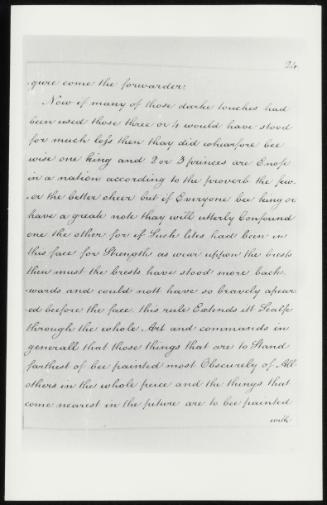 24.
gure come the forwarder:
Now if many of those darke touches had
been used those three or 4 would have stood
for much loss then thay did wharfore bee
wise one king and 2 or 3 princes are Enofe
in a nation according to the proverb the few-
-or the better cheer but if Everyone bee king or
have a greate note thay will utterly Confound
one the other for if Such lites had been in
this face for Strength as wear uppon the brests
then must the brests have stood more back
wards and could nott have so bravely apear
ed beefore the face. this rule Extends itt Sealfe
through the whole Art and commands in
generall that those things that are to Stand
farthest of bee painted most Obscurely of All
others in the whole peece and the things that
come nearest in the picture are to bee painted
with